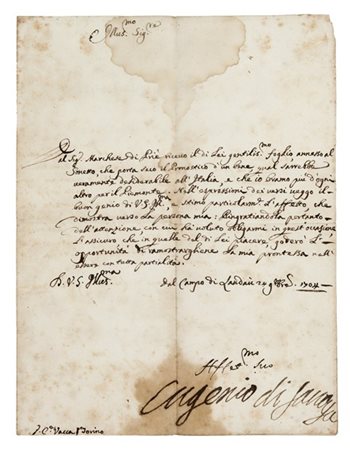 Illus.mo Sig.re
Dal Sig.r Marchese di Priè ricevo il di Lei gentilis.mo foglio annesso al
Sonetto, che porta seco il Pronostico d'un bene qual sarebbe
veramente desiderabile all'Italia, e che io bramo più d'ogni
altro per il Piemonte. Nell'espressione dei versi veggo il
buon genio di V.S. Ill.ma stimo particolarm.te l'affetto che
dimostra verso la persona mia: Ringratiandola pertanto
dell'attenzione, con cui hà voluto obligarmi in quest'occasione
l'assicuro che in quelle del di Lei piacere, goderò l'
opportunità di ramostrarghene la mia prontezza nell'
essere con tutta partialità.
D. V. S. Illus.ma
Dal Campo di Landau 20 1704
Affes.mo Suo
Eugenio di Savoya
Vacca Torino